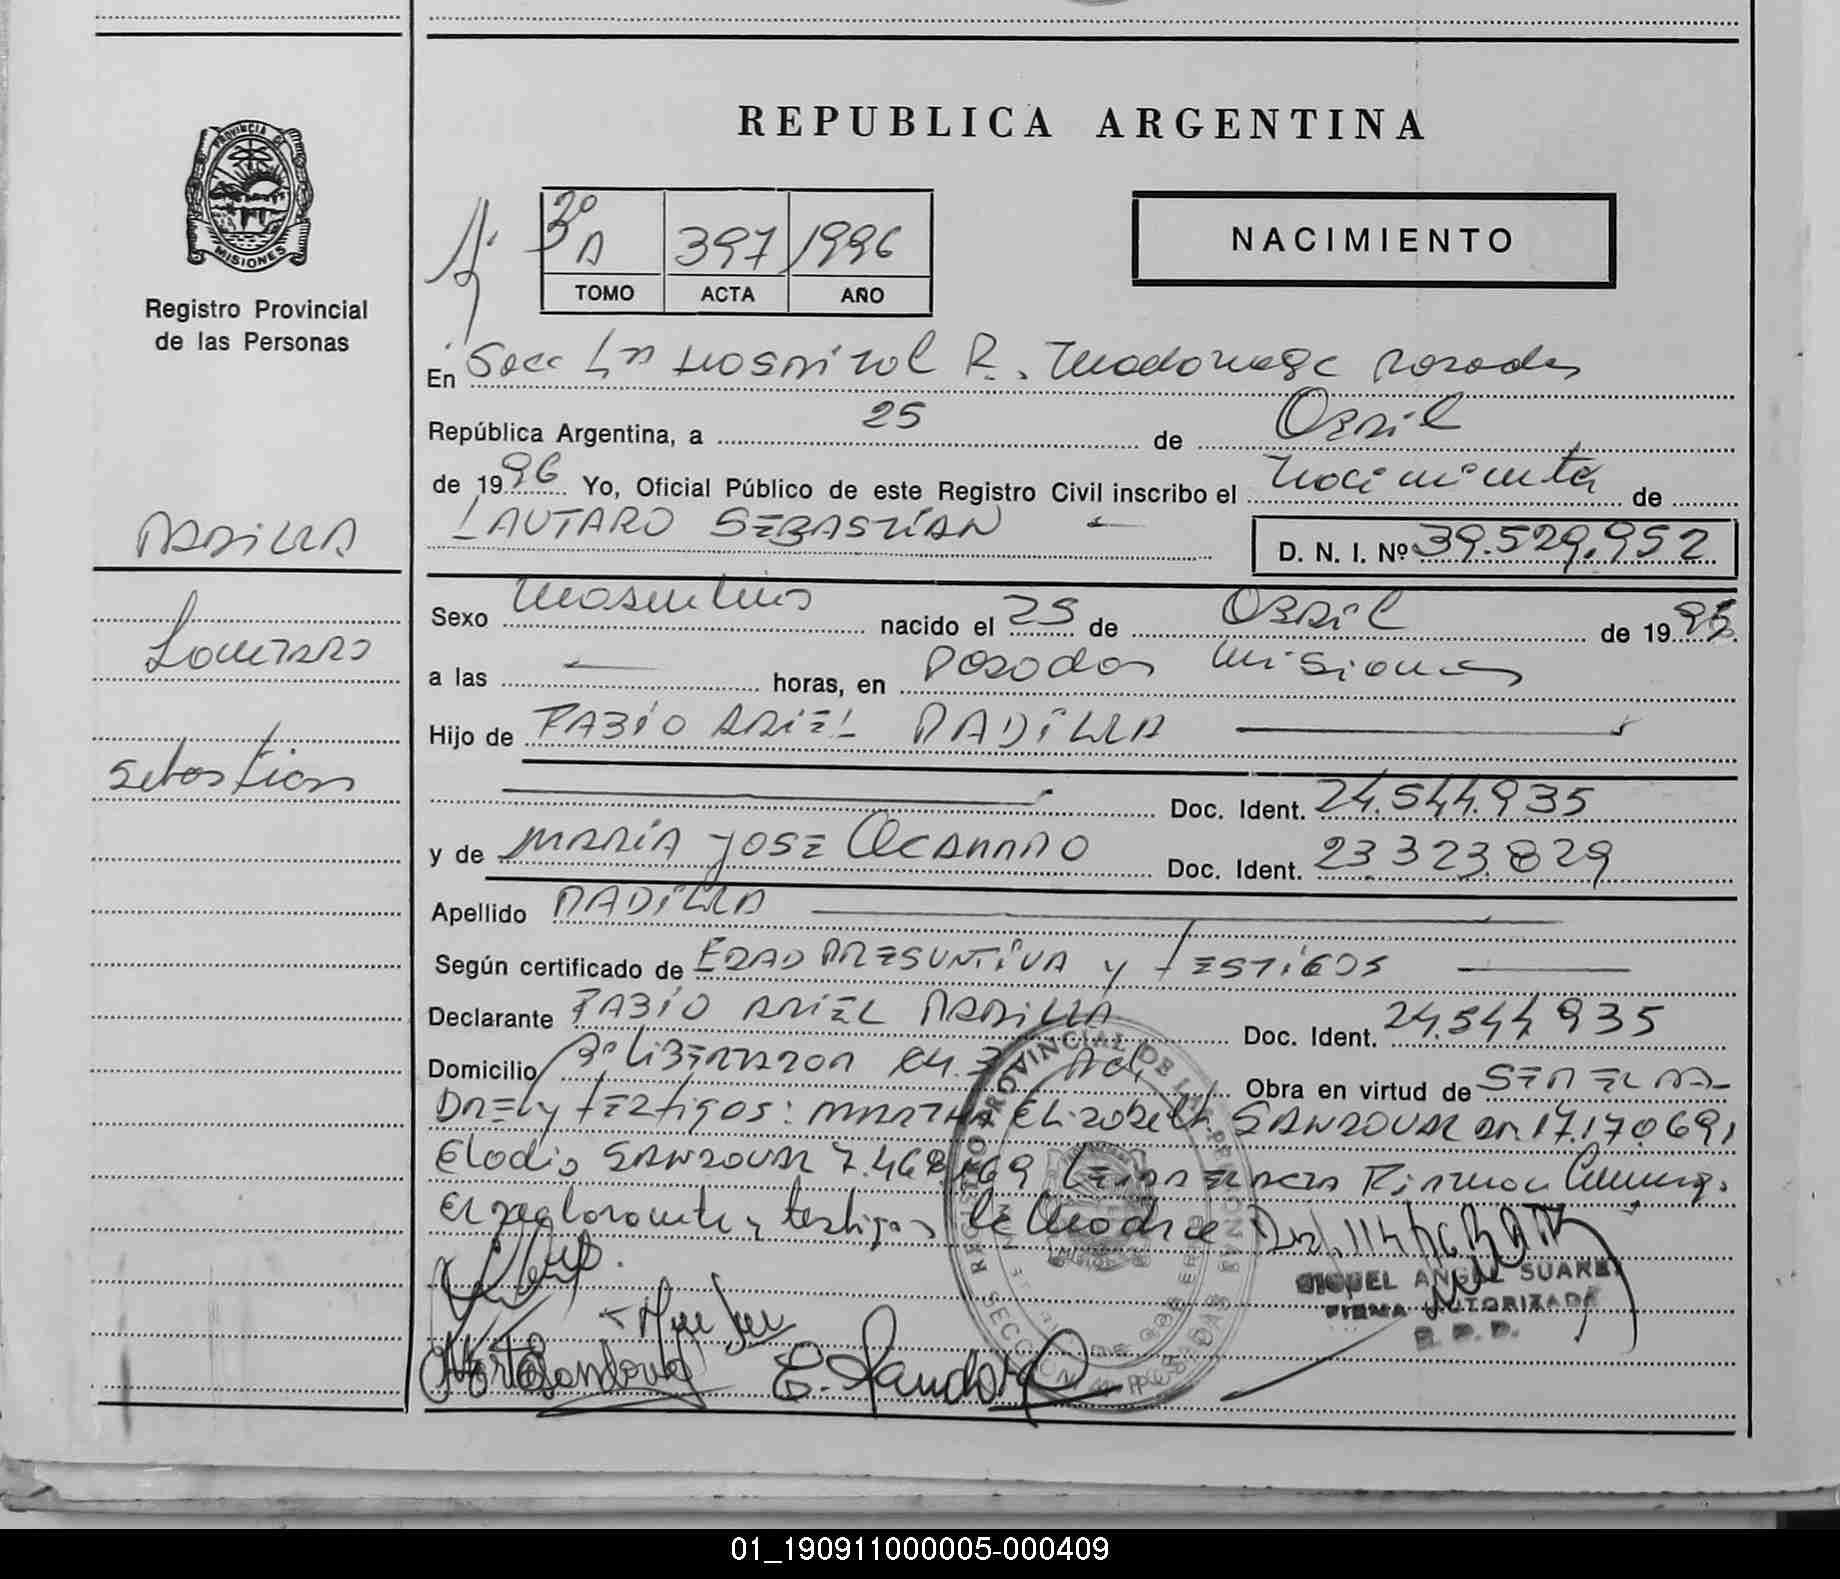 REPUBLICA ARGENTINA
PROVINCIA DE
MISIONES
Registro Provincial
de las Personas
3º A 397 1996
TOMO ACTA AÑO
NACIMIENTO
En Secc Hospital R. Madariaga Posadas
República Argentina, a 25 de Abril
de 1996 Yo, Oficial Público de este Registro Civil inscribo el Nacimiento de
LAUTARO SEBASTIAN D. N. I. Nº 39.529.952
PADILLA
Lautaro
Sebastian
Sexo Masculino nacido el 25 de Abril de 1996.
a las horas, en Posadas Misiones
Hijo de FABIO ARIEL PADILLA
Doc. Ident. 24.544.935
y de MARIA JOSE Doc. Ident. 23.323.829
Apellido PADILLA
Según certificado de EDAD PRESUNTIVA y TESTIGOS
Declarante FABIO ARIEL PADILLA Doc. Ident. 24.544.935
Domicilio Bº LIBERTADOR Obra en virtud de SER EL PA-
DRE y TESTIGOS: MARTHA Elizabeth SANDOVAL 17.170.691
Eladio SANDOVAL Firman
El declarante, testigos la Madre
MIGUEL ANGEL SUAREZ
FIRMA AUTORIZADA
R. P. P.
Marta Sandoval E. Sandoval
REGISTRO PROVINCIAL DE LAS PERSONAS
01_190911000005-000409